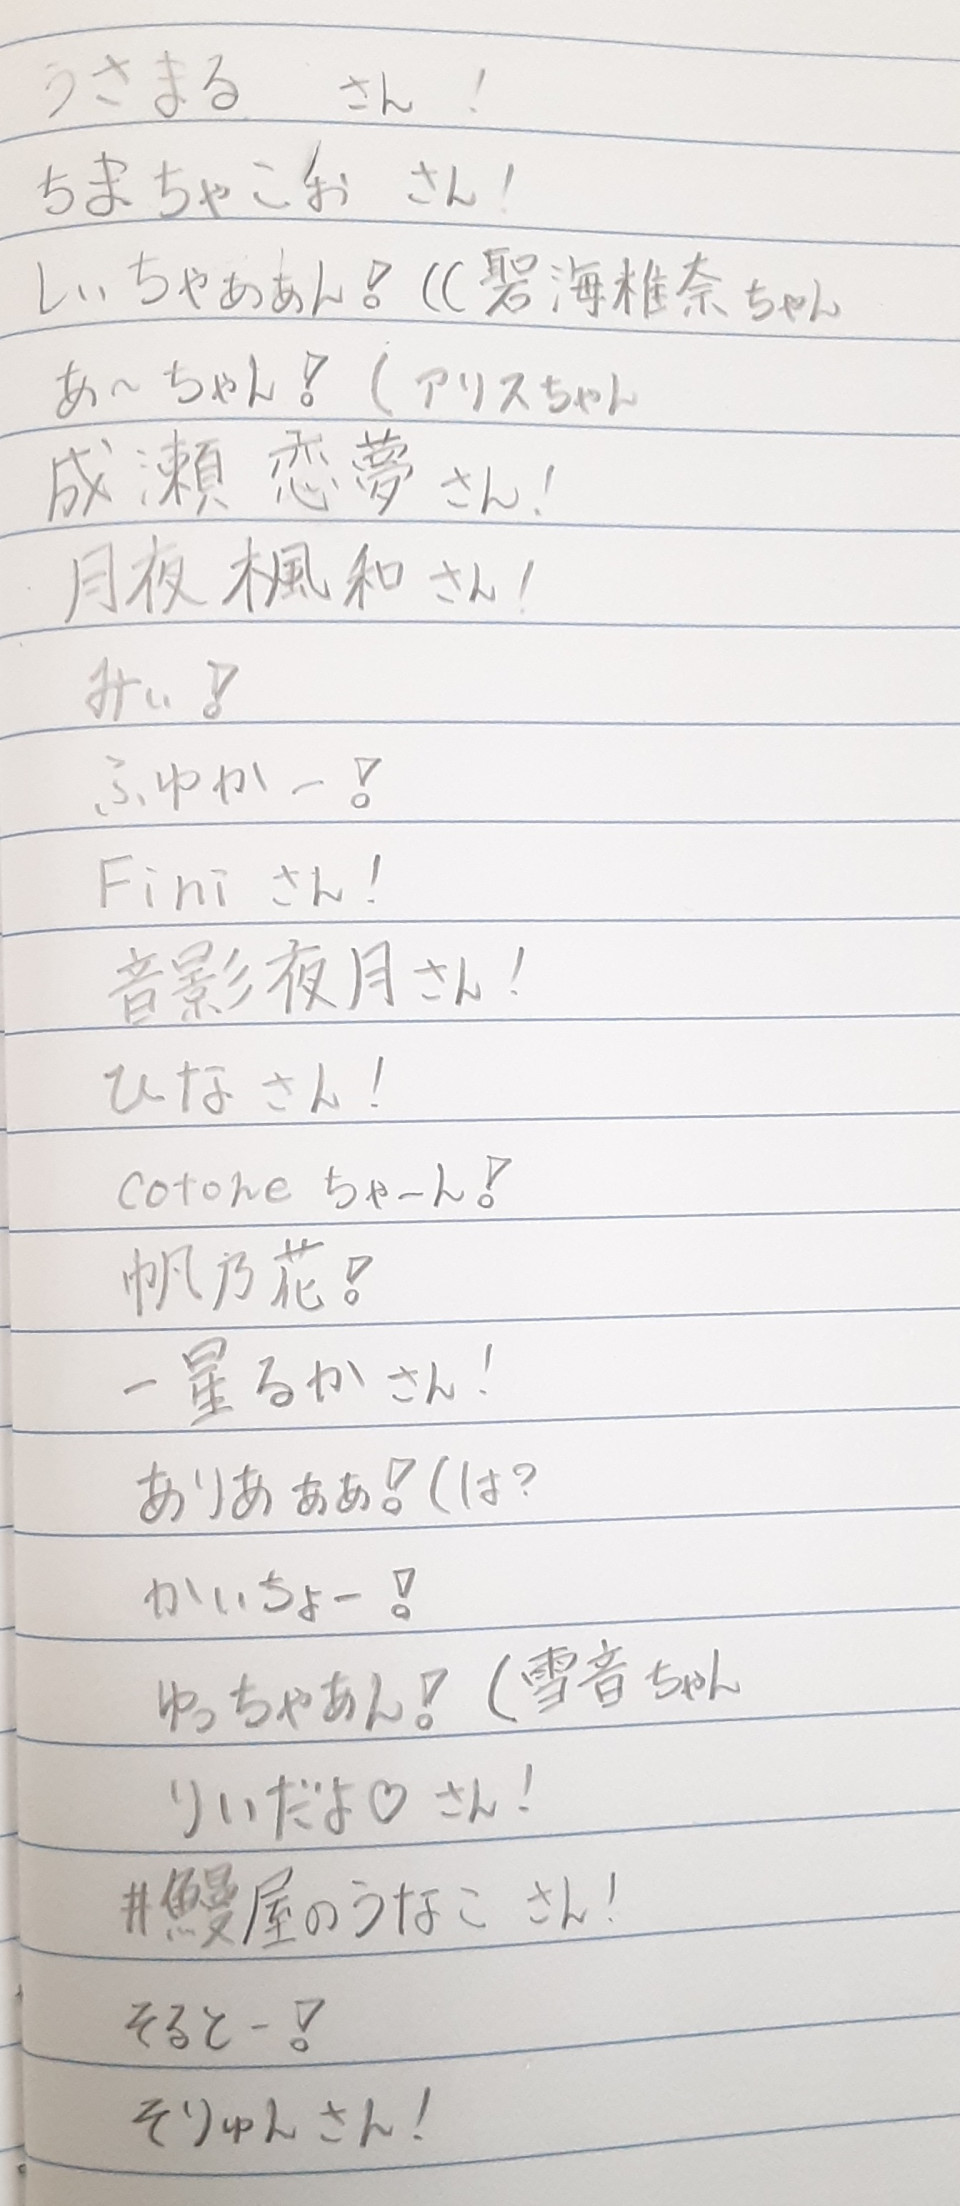 うさまる さん！
ちまちゃこお さん！
しぃちゃぁぁん！((碧海椎奈ちゃん
あ～ちゃん！(アリスちゃん
成瀬 恋夢さん！
月夜 楓和さん！
みぃ！
ふゆかー！
Finiさん！
音影夜月さん！
ひなさん！
cotoneちゃーん！
帆乃花！
一星るかさん！
ありあぁぁ！(は？
かいちょー！
ゆっちゃあん！(雪音ちゃん
りいだよ♡ さん！
#鰻屋のうなこ さん！
そるとー！
そりゅんさん！